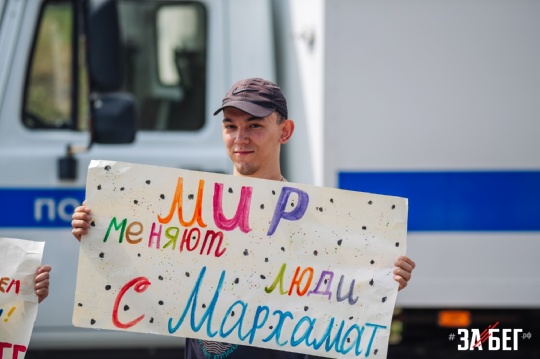 по
мир
меняют люди
с Мархамат
#ЗАБЕГ.рф